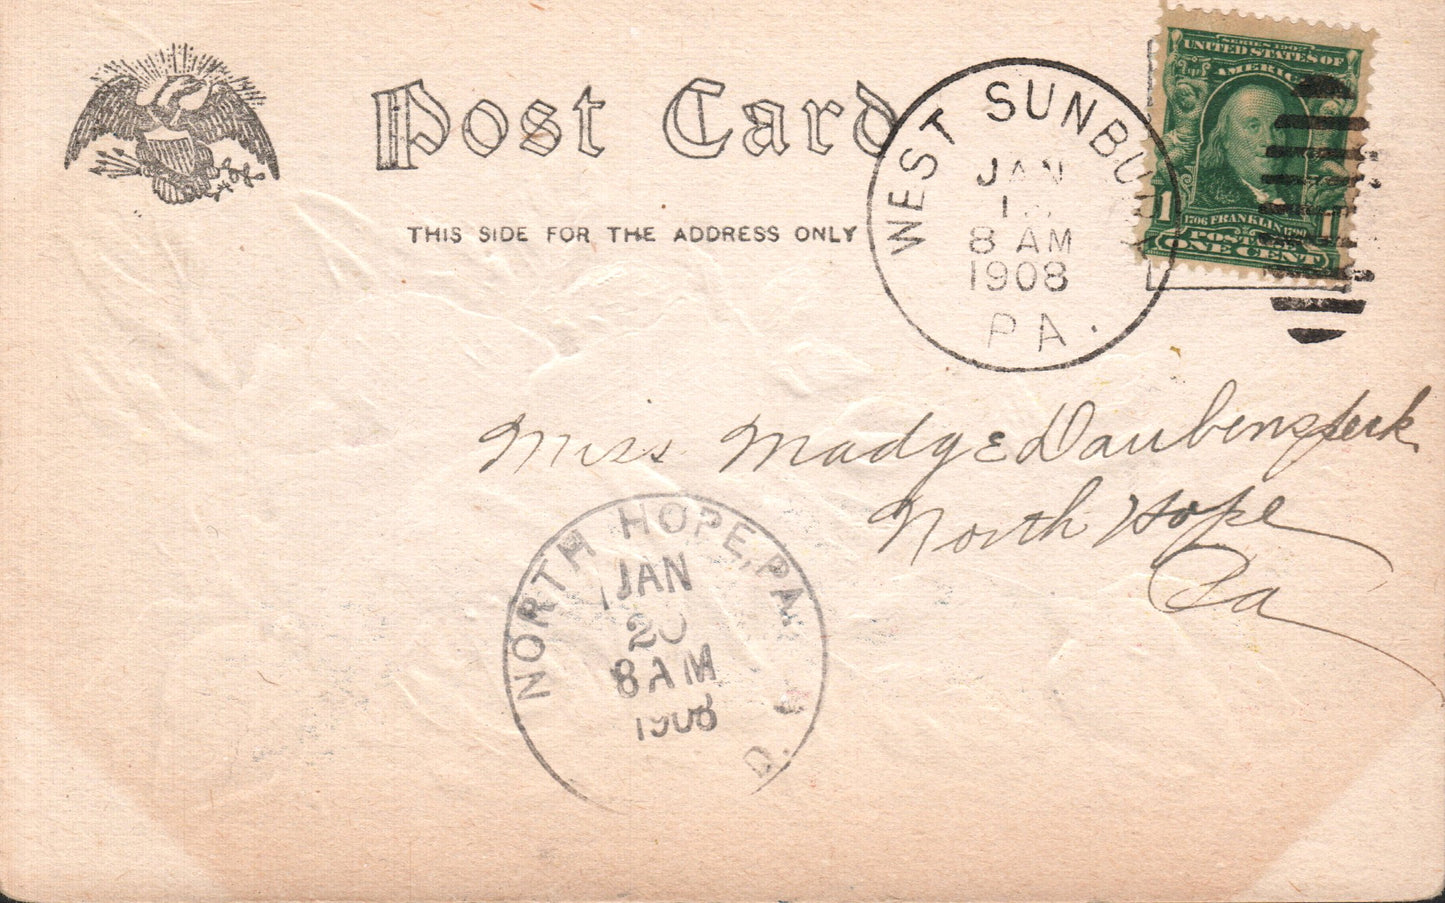 Post Card
THIS SIDE FOR THE ADDRESS ONLY
WEST SUNBURY
JAN
8 AM
1908
PA.
SERIES 1902
UNITED STATES OF
AMERICA
1 1706 FRANKLIN 1790 1
POSTAGE
ONE CENT
Miss Madge Daubenspeck
North Hope
Pa
NORTH HOPE, PA.
JAN
20
8 AM
1908